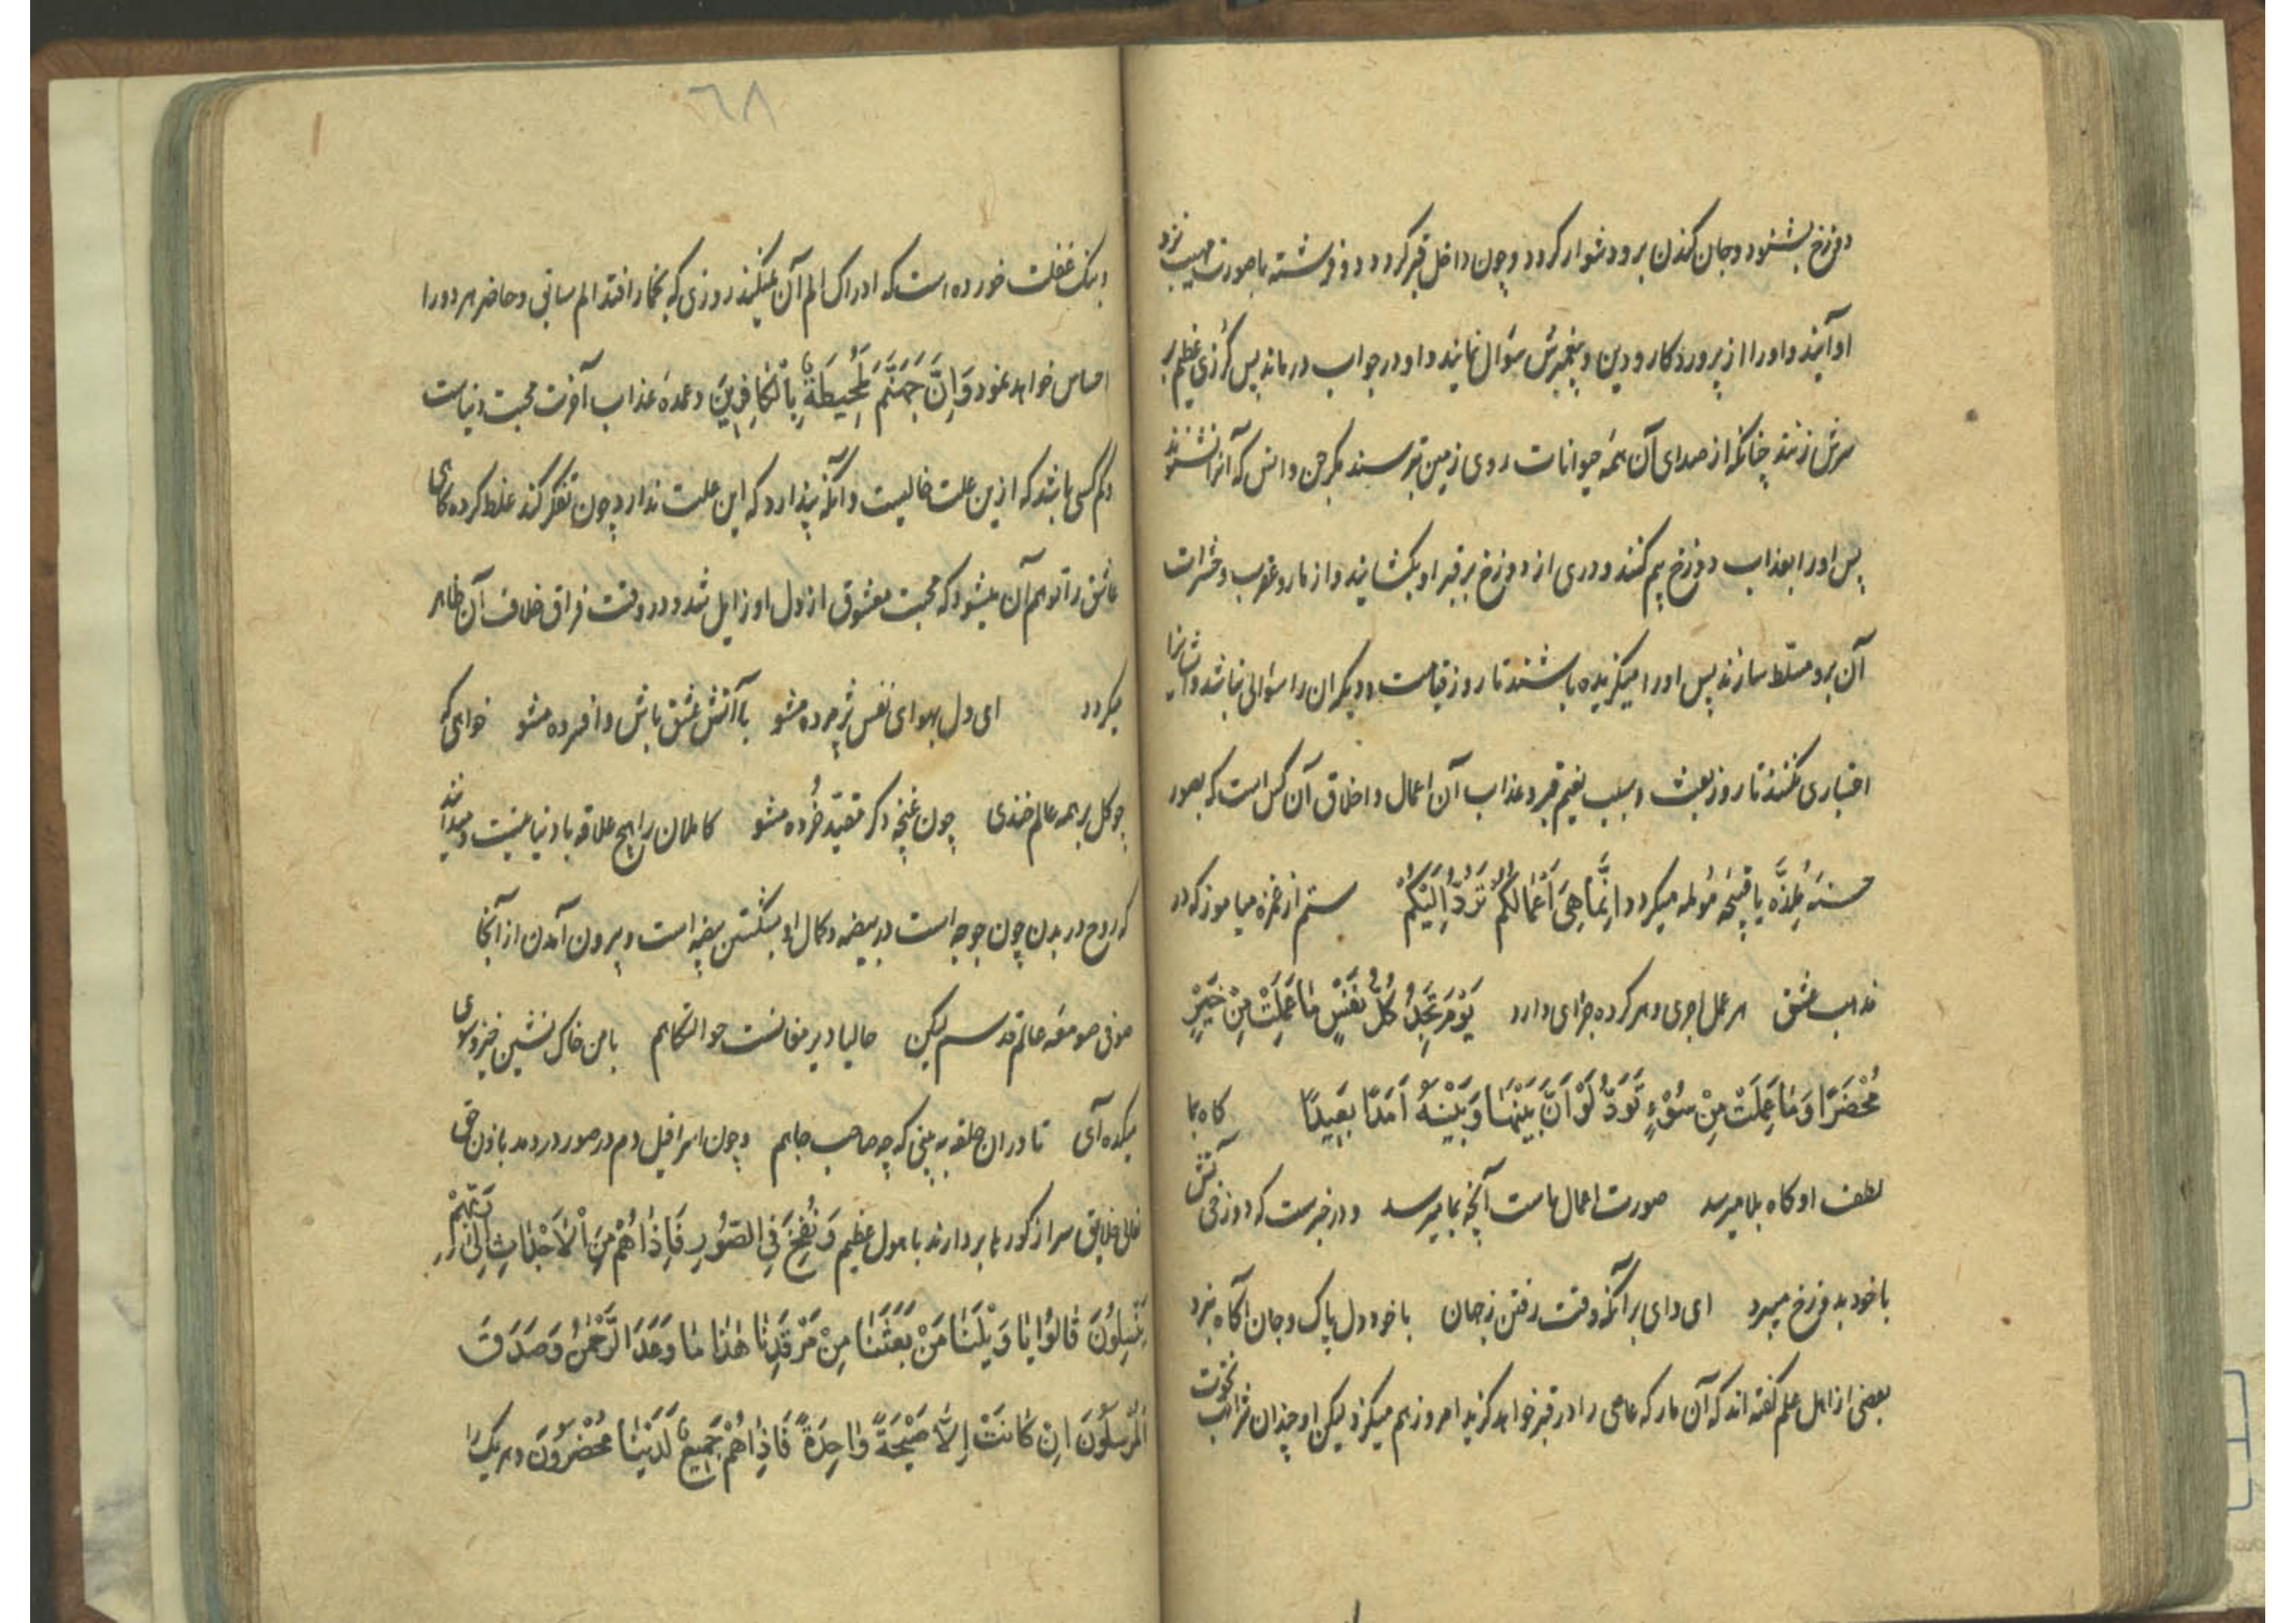 دوزخ بشنود و جان کندن برو دشوار کردد و چون داخل قبر کردد دو فرشته با صورت مهیب نزد
او آیند و او را از پروردکار و دین و پیغمبرش سؤال نمایند و او در جواب درماند پس کُرزی عظیم بر
سرش زنند چنانکه از صدای آن همه حیوانات روی زمین بترسند مکر جن و انس که آنرا نشنوند
پس او را بعذاب دوزخ بیم کنند و دری از دوزخ بر قبر او بکشایند و از مار و عقرب و حشرات
آن برو مسلّط سازند پس او را میکزیده باشند تا روز قیامت و دیکران را سؤالی نباشد و ایشانرا
اختیاری نکنند تا روز بعث و سبب نعیم قبر و عذاب آن اعمال و اخلاق آن کس است که بصور
حسنهٔ مُلِذَّه یا قبیحهٔ مُولمه میکردد اِنَّمَا هِیَ اَعْمَالُکُمْ تُرَدُّ اِلَیْکُمْ ستم از غمزه میاموز که در
مذهب عشق هر عمل اجری و هر کرده جزای دارد یَوْمَ تَجِدُ کُلُّ نَفْسٍ مَا عَمِلَتْ مِنْ خَیْرٍ
مُحْضَرًا وَ مَا عَمِلَتْ مِنْ سُوْءٍ تَوَدُّ لَوْ اَنَّ بَیْنَهَا وَ بَیْنَهُ اَمَدًا بَعِیدًا کاه بما
لطف او کاه بلا میرسد صورت اعمال ماست آنچه بما میرسد و در خبرست که دوزخی آتش
با خود بدوزخ میبرد ای وای بر آنکه وقت رفتن ز جهان با خود دل پاک و جان آکاه نبرد
بعضی از اهل علم کفته اند که آن مار که عاصی را در قبر خواهد کزید امروز هم میکزد لیکن او چندان شراب نخوت
٦٨
و بنک غفلت خورده است که ادراک الم آن نمیکند روزی که بخمار افتد الم سابق و حاضر هر دو را
احساس خواهد نمود وَ اِنَّ جَهَنَّمَ لَمُحِیطَةٌ بِالْکَافِرِینَ و عمدهٔ عذاب آخرت محبت دنیاست
و کم کسی باشد که ازین علت خالیست و آنکه پندارد که این علت ندارد چون تفکر کند غلط کرده کاهی
عاشق را توهم آن میشود که محبت معشوق از دل او زایل شد و در وقت فراق خلاف آن ظاهر
میکردد ای دل بهوای نفس پژمرده مشو با آتش عشق باش و افسرده مشو خواهی که
چو کل بر همه عالم خندی چون غنچه دکر مقیّد خُرده مشو کاملان را هیچ علاقه با دنیا نیست و میدانند
که روح در بدن چون جوجه است در بیضه و کمال او بشکستن بیضه است و بیرون آمدن از آنجا
صوفی صومعهٔ عالم قدسم لیکن حالیا دیر مغانست حوالتکاهم با من خاک نشین خیز و سوی
میکده آی تا در ان حلقه به بینی که چه صاحب جاهم و چون اسرافیل دم در صور دردمد باذن حق
تعالی خلایق سر از کورها بردارند با هول عظیم وَ نُفِخَ فِی الصُّورِ فَاِذَا هُمْ مِنَ الْاَجْدَاثِ اِلَیٰ رَبِّهِمْ
یَنْسِلُونَ قَالُوا یَا وَیْلَنَا مَنْ بَعَثَنَا مِنْ مَرْقَدِنَا هٰذَا مَا وَعَدَ الرَّحْمٰنُ وَ صَدَقَ
الْمُرْسَلُونَ اِنْ کَانَتْ اِلَّا صَیْحَةً وَاحِدَةً فَاِذَا هُمْ جَمِیعٌ لَدَیْنَا مُحْضَرُونَ و هر یک را